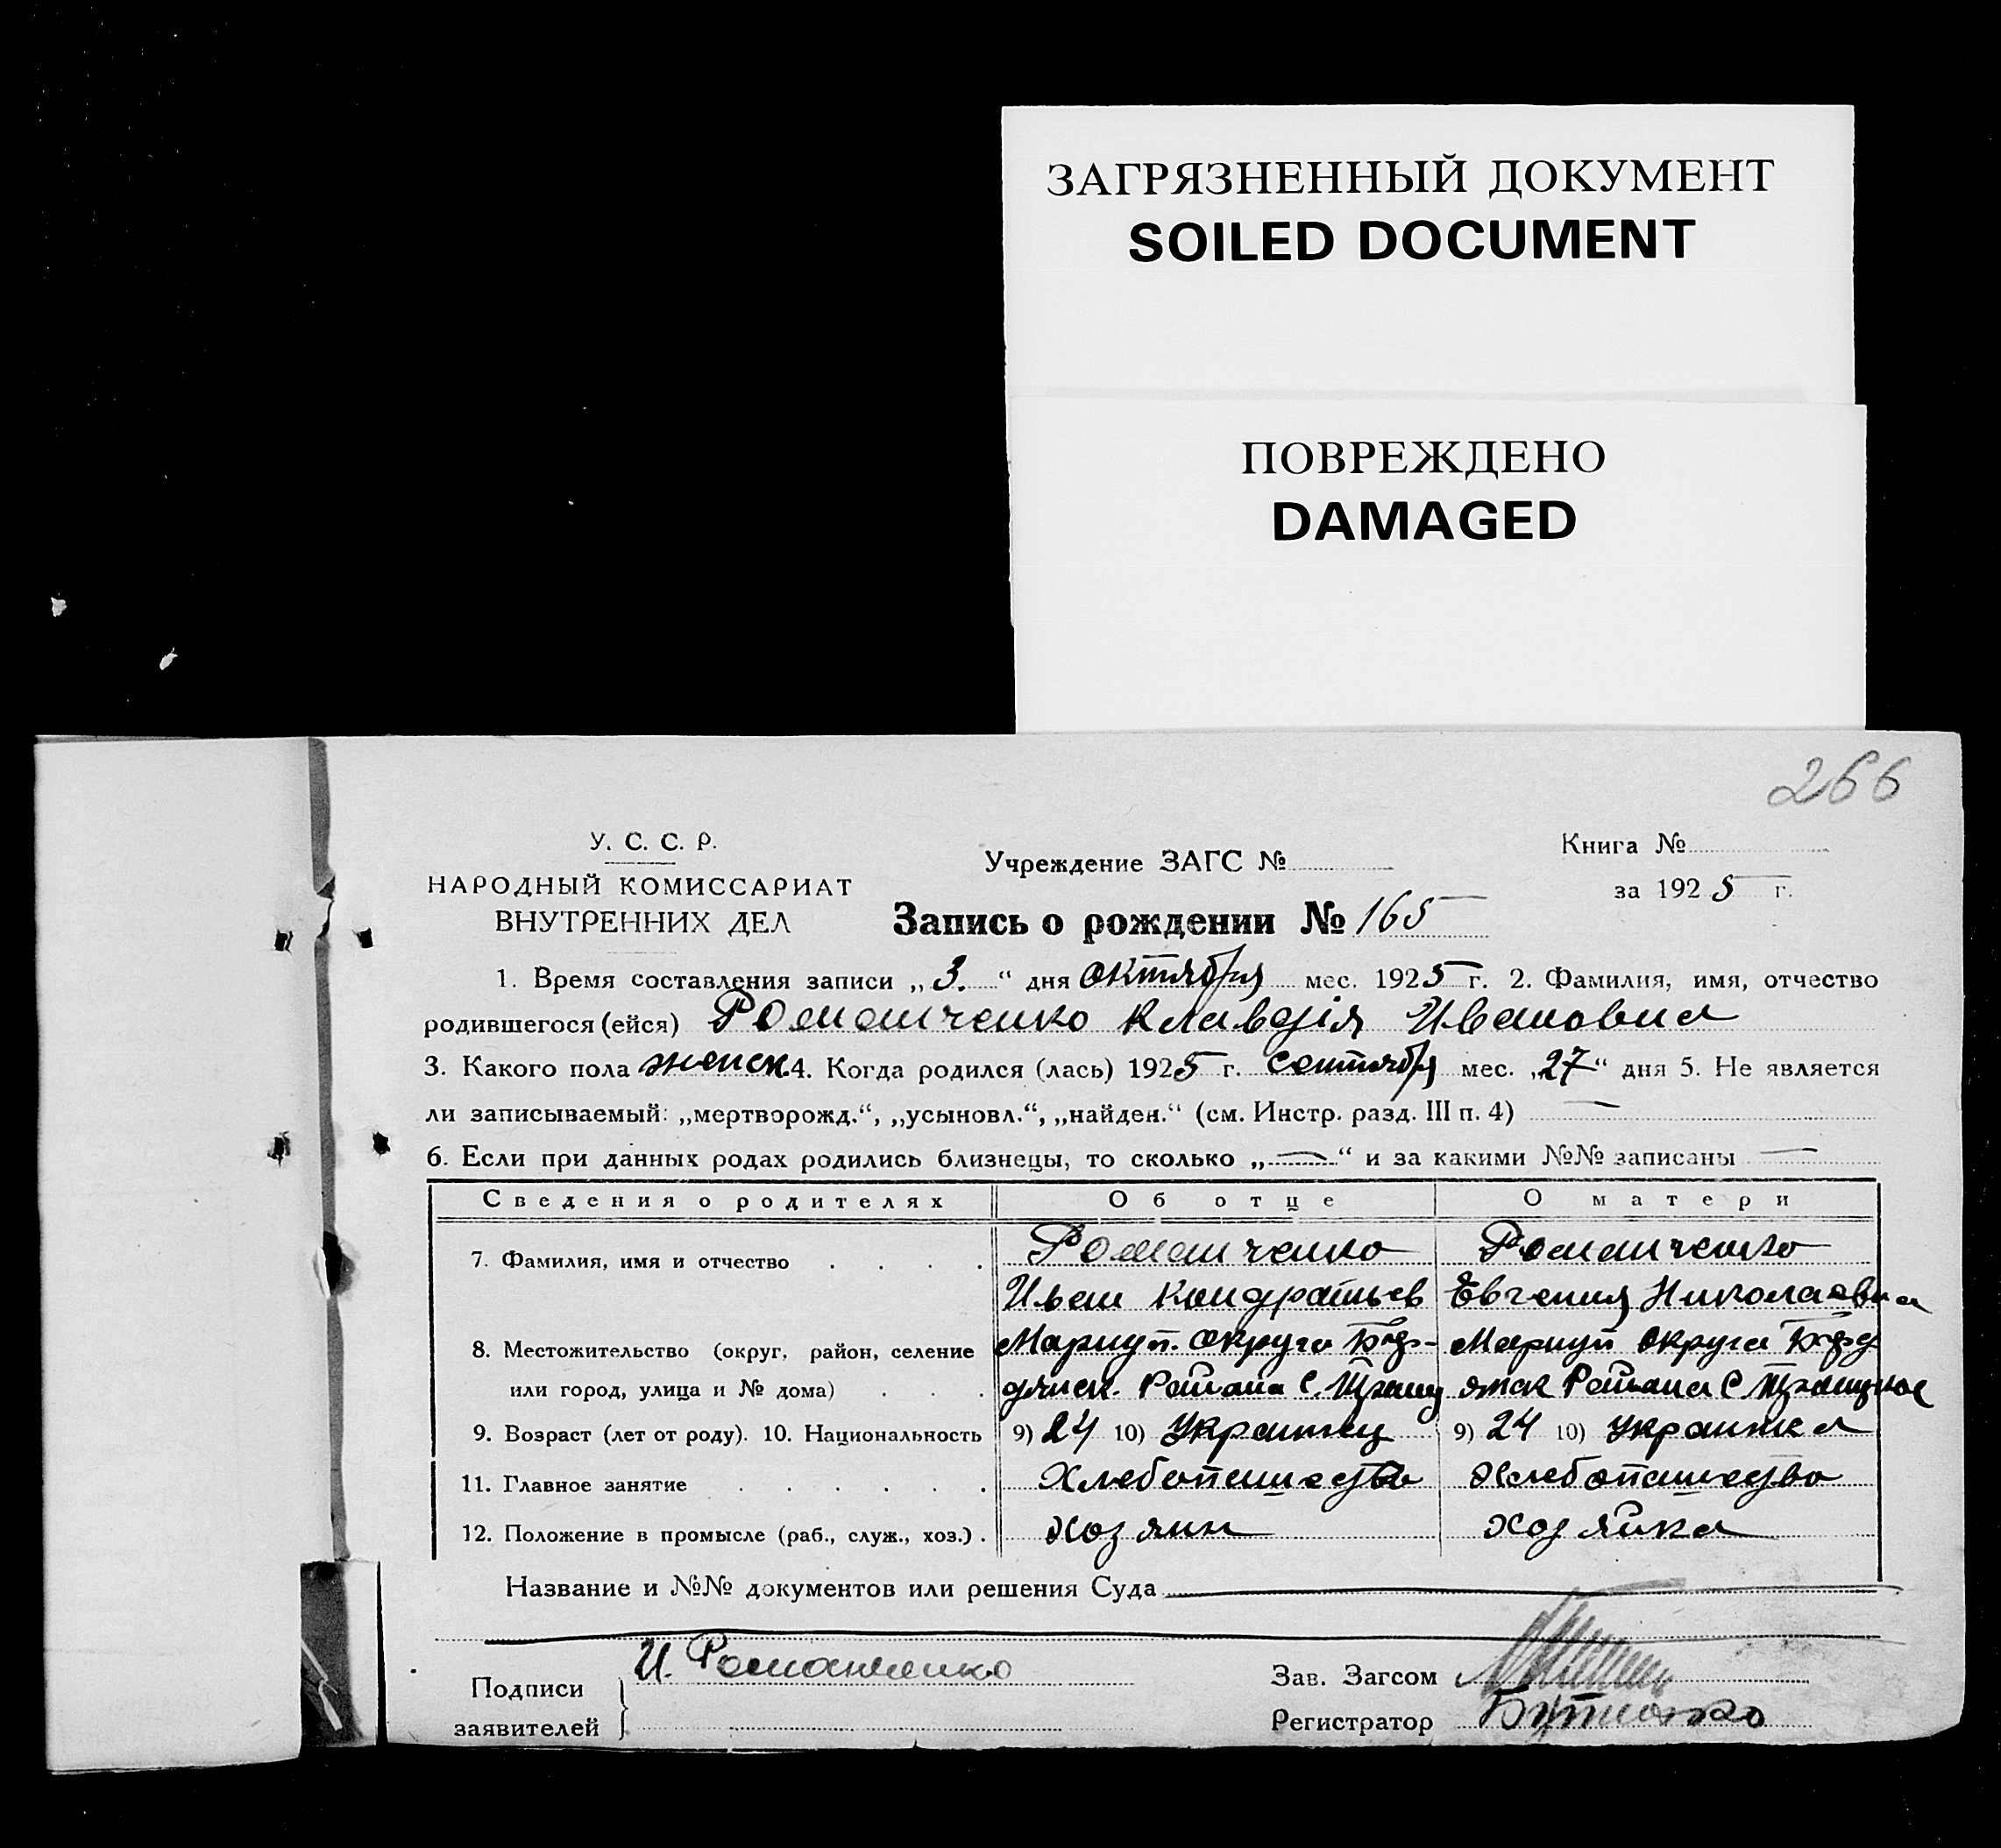 ЗАГРЯЗНЕННЫЙ ДОКУМЕНТ
SOILED DOCUMENT
ПОВРЕЖДЕНО
DAMAGED
266
У. С. С. Р.
НАРОДНЫЙ КОМИССАРИАТ
ВНУТРЕННИХ ДЕЛ
Учреждение ЗАГС №
Книга №
за 1925 г.
Запись о рождении № 165
1. Время составления записи „3.“ дня октября мес. 1925 г. 2. Фамилия, имя, отчество
родившегося (ейся) Романченко Клавдія Ивановна
3. Какого пола женск. 4. Когда родился (лась) 1925 г. сентября мес. „27“ дня 5. Не является
ли записываемый: „мертворожд.“, „усыновл.“, „найден.“ (см. Инстр. разд. III п. 4) —
6. Если при данных родах родились близнецы, то сколько „—“ и за какими №№ записаны —
Сведения о родителях Об отце О матери
7. Фамилия, имя и отчество . . . . Романченко Романченко
Иван Кондратьев Евгения Николаевна
8. Местожительство (округ, район, селение Мариуп. округа Бер- Мариуп округа Бердя
или город, улица и № дома) . . . дянск. Района С. Троиц янск Района С Троицкое
9. Возраст (лет от роду). 10. Национальность 9) 24 10) Украинец 9) 24 10) Украинка
11. Главное занятие . . . . . . Хлебопашество Хлебопашество
12. Положение в промысле (раб., служ., хоз.) . хозяин хозяйка
Название и №№ документов или решения Суда
Подписи
заявителей
И. Романченко
Зав. Загсом
Регистратор